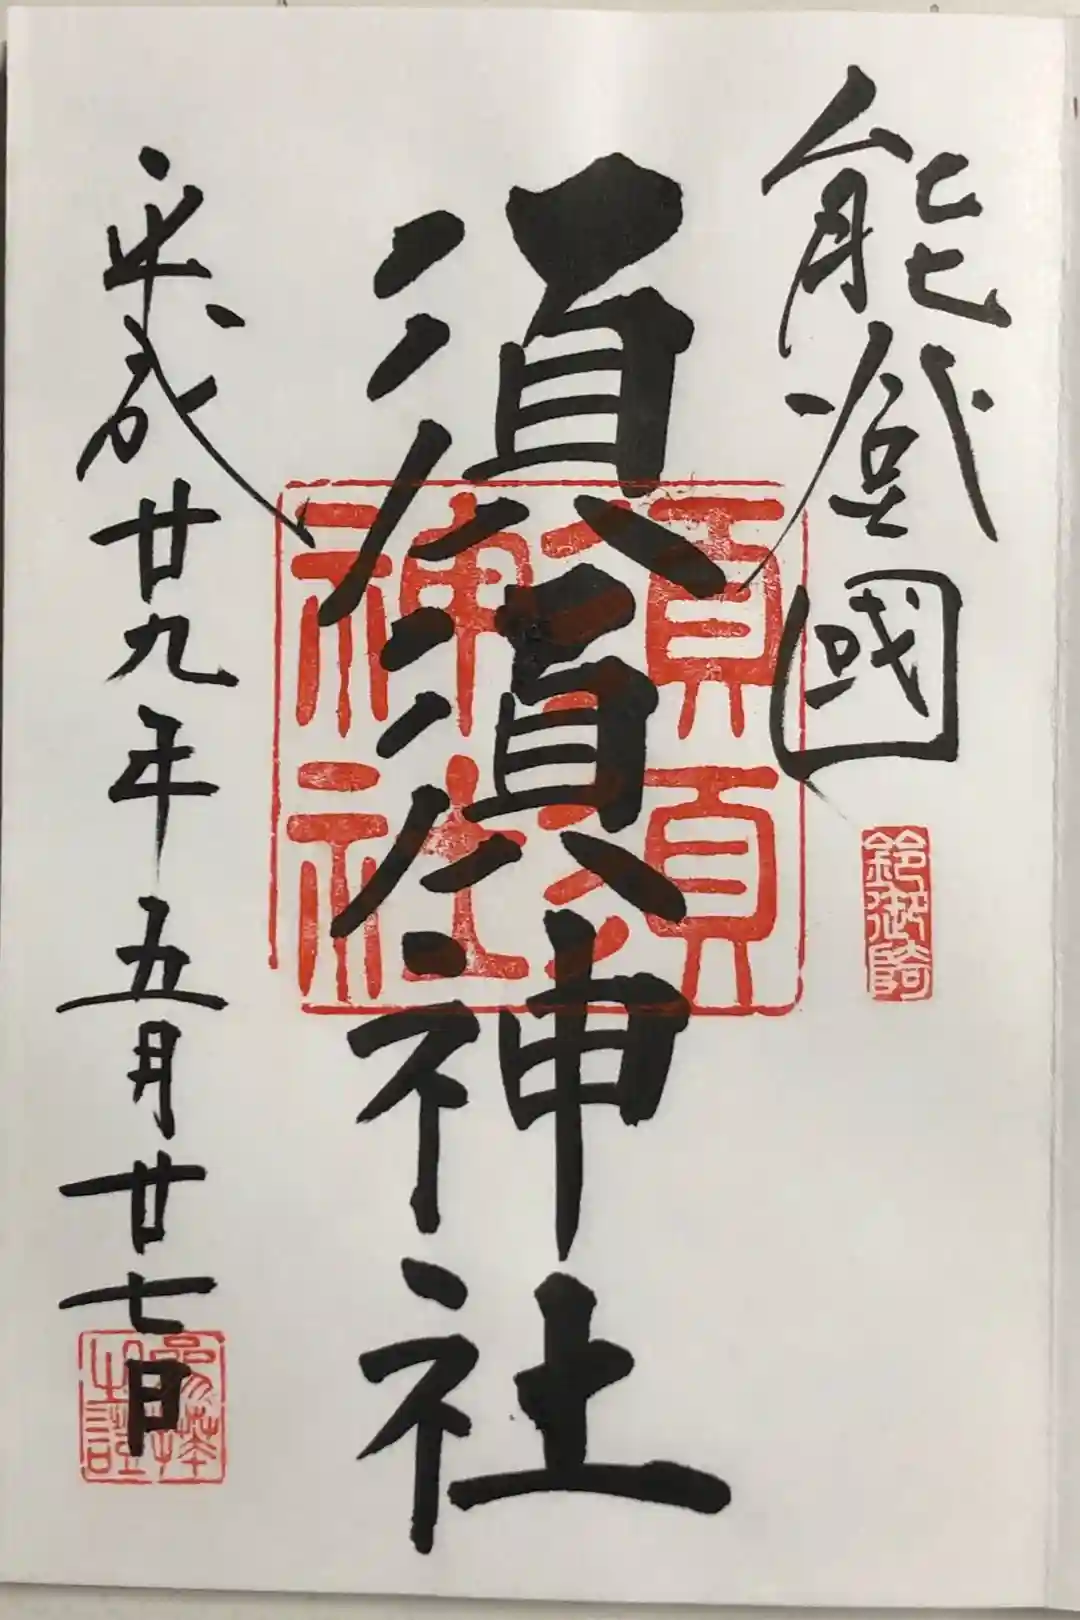 能登國
鈴御崎
須須神社
須須
神社
平成廿九年五月廿七日